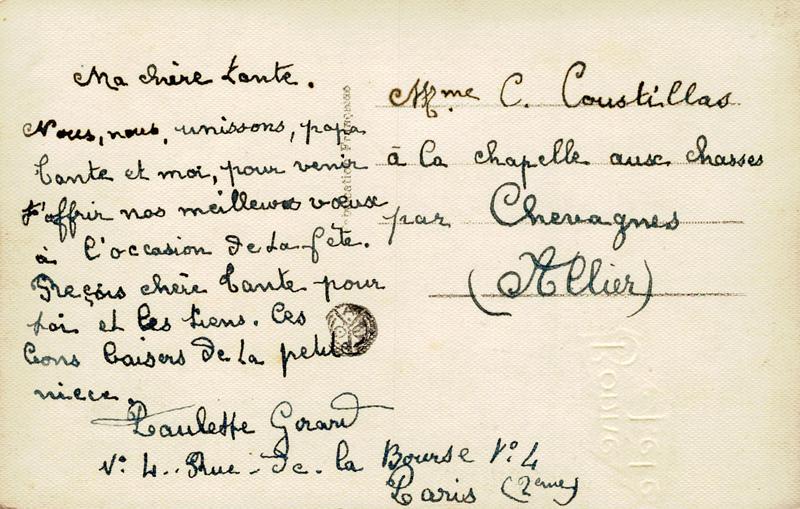 Ma chère tante.
Nous, nous, unissons, papa
tante et moi, pour venir
t'offrir nos meilleurs vœux
à l'occasion de ta fête.
Reçois chère tante pour
toi et les tiens. Les
bons baisers de ta petite
niece.
Paulette Girard
N°. 4.. Rue - de. la Bourse N°. 4
Paris (2eme)
Mme C. Coustillas
à la chapelle aux chasses
par Chevagnes
(Allier)